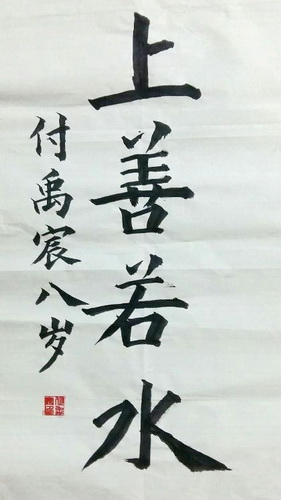 上善若水
付禹宸八岁